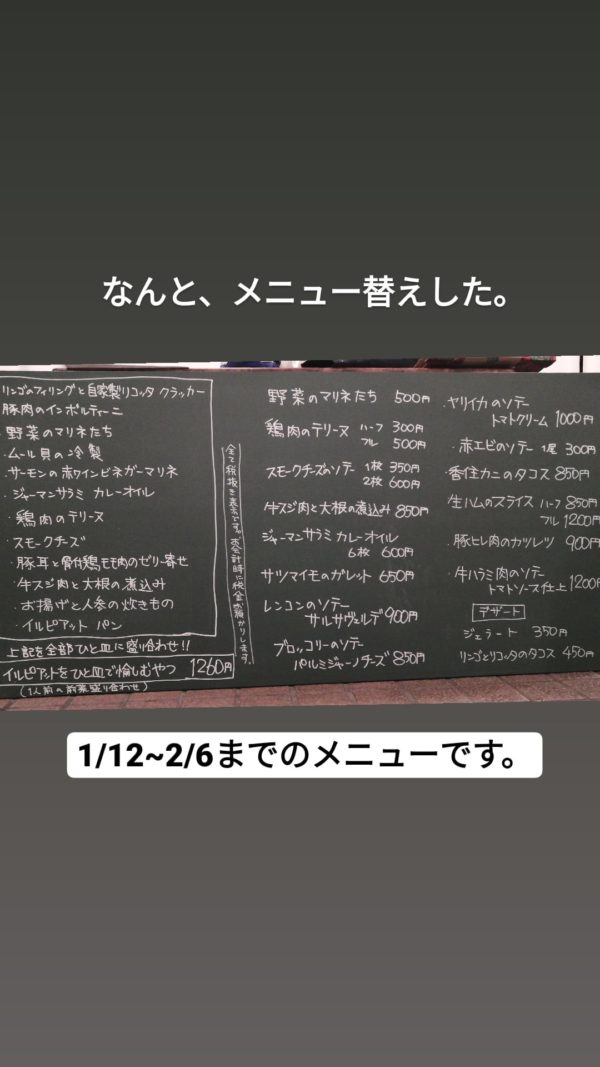 なんと、メニュー替えした。
リンゴのフィリングと自家製リコッタ クラッカー
豚肉のインボルティーニ
・野菜のマリネたち
・ムール貝の冷製
・サーモンの赤ワインビネガーマリネ
・ジャーマンサラミ カレーオイル
・鶏肉のテリーヌ
・スモークチーズ
・豚耳と骨付鶏モモ肉のゼリー寄せ
・牛スジ肉と大根の煮込み
・お揚げと人参の炊きもの
・イルピアット パン
上記を全部ひと皿に盛り合わせ!!
イルピアットをひと皿で愉しむやつ 1260円
(1人前の前菜盛り合わせ)
全て税抜き表示です。お会計時に税金お預かりします。
野菜のマリネたち 500円
鶏肉のテリーヌ ハーフ 300円
フル 500円
スモークチーズのソテー 1枚 350円
2枚 600円
牛スジ肉と大根の煮込み 850円
ジャーマンサラミ カレーオイル
6枚 600円
サツマイモのガレット 650円
レンコンのソテー
サルサヴェルデ 900円
ブロッコリーのソテー
パルミジャーノチーズ 850円
・ヤリイカのソテー
トマトクリーム 1000円
・赤エビのソテー 1尾 300円
・香住カニのタコス 850円
生ハムのスライス ハーフ 850円
フル 1200円
・豚ヒレ肉のカツレツ 900円
・牛ハラミ肉のソテー
トマトソース仕上 1200円
デザート
ジェラート 350円
リンゴとリコッタのタコス 450円
1/12~2/6までのメニューです。